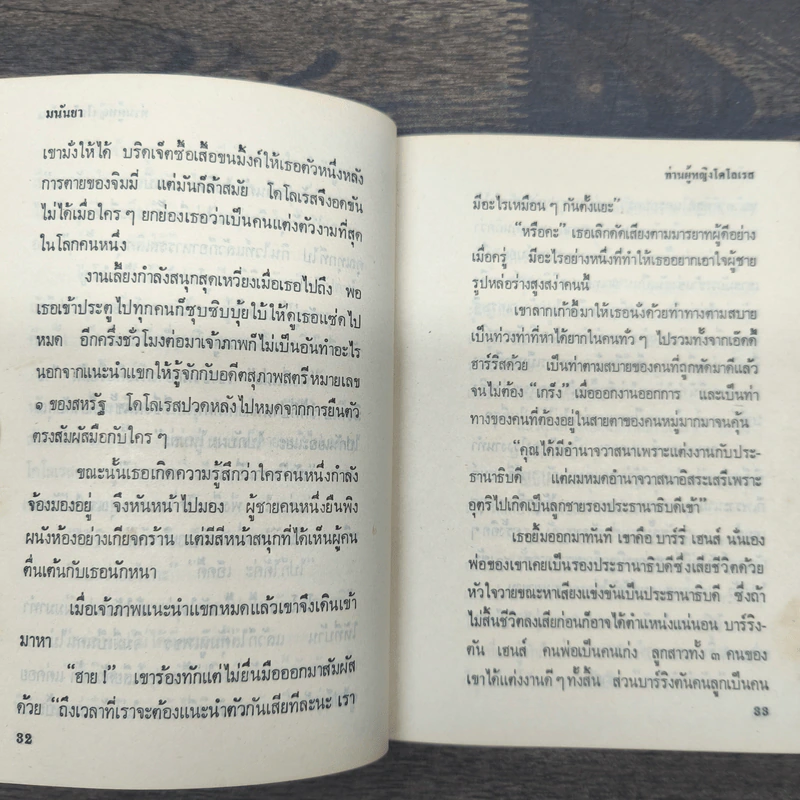 มนันยา
เขามั่งให้ได้ บริดเจ็ตซื้อเสื้อขนมิ้งค์ให้เธอตัวหนึ่งหลัง
การตายของจิมมี่ แต่มันก็ล้าสมัย โดโลเรสจึงอดขัน
ไม่ได้เมื่อใคร ๆ ยกย่องเธอว่าเป็นคนแต่งตัวงามที่สุด
ในโลกคนหนึ่ง
งานเลี้ยงกำลังสนุกสุดเหวี่ยงเมื่อเธอไปถึง พอ
เธอเข้าประตูไปทุกคนก็ซุบซิบบุ้ยใบ้ให้ดูเธอแซ่ดไป
หมด อีกครึ่งชั่วโมงต่อมาเจ้าภาพก็ไม่เป็นอันทำอะไร
นอกจากแนะนำแขกให้รู้จักกับอดีตสุภาพสตรีหมายเลข
๑ ของสหรัฐ โดโลเรสปวดหลังไปหมดจากการยืนตัว
ตรงสัมผัสมือกับใคร ๆ
ขณะนั้นเธอเกิดความรู้สึกว่าใครคนหนึ่งกำลัง
จ้องมองอยู่ จึงหันหน้าไปมอง ผู้ชายคนหนึ่งยืนพิง
ผนังห้องอย่างเกียจคร้าน แต่มีสีหน้าสนุกที่ได้เห็นผู้คน
ตื่นเต้นกับเธอนักหนา
เมื่อเจ้าภาพแนะนำแขกหมดแล้วเขาจึงเดินเข้า
มาหา
“ฮาย !” เขาร้องทักแต่ไม่ยื่นมือออกมาสัมผัส
ด้วย “ถึงเวลาที่เราจะต้องแนะนำตัวกันเสียทีละนะ เรา
32
ท่านผู้หญิงโดโลเรส
มีอะไรเหมือน ๆ กันตั้งแยะ”
“หรือคะ” เธอเลิกดัดเสียงตามมารยาทผู้ดีอย่าง
เมื่อครู่ มีอะไรอย่างหนึ่งที่ทำให้เธออยากเอาใจผู้ชาย
รูปหล่อร่างสูงสง่าคนนี้
เขาลากเก้าอี้มาให้เธอนั่งด้วยท่าทางตามสบาย
เป็นท่วงท่าที่หาได้ยากในคนทั่ว ๆ ไปรวมทั้งจากเอ๊ดดี้
ฮาร์ริสด้วย เป็นท่าตามสบายของคนที่ถูกหัดมาดีแล้ว
จนไม่ต้อง “เกร็ง” เมื่อออกงานออกการ และเป็นท่า
ทางของคนที่ต้องอยู่ในสายตาของคนหมู่มากมาจนคุ้น
“คุณได้มีอำนาจวาสนาเพราะแต่งงานกับประ-
ธานาธิบดี แต่ผมหมดอำนาจวาสนาอิสระเสรีเพราะ
อุตริไปเกิดเป็นลูกชายรองประธานาธิบดีเข้า”
เธอยิ้มออกมาทันที เขาคือ บาร์รี่ เฮนส์ นั่นเอง
พ่อของเขาเคยเป็นรองประธานาธิบดีซึ่งเสียชีวิตด้วย
หัวใจวายขณะหาเสียงแข่งขันเป็นประธานาธิบดี ซึ่งถ้า
ไม่สิ้นชีวิตลงเสียก่อนก็อาจได้ตำแหน่งแน่นอน บาร์ริง-
ตัน เฮนส์ คนพ่อเป็นคนเก่ง ลูกสาวทั้ง ๓ คนของ
เขาได้แต่งงานดี ๆ ทั้งสิ้น ส่วนบาร์ริงตันคนลูกเป็นคน
33